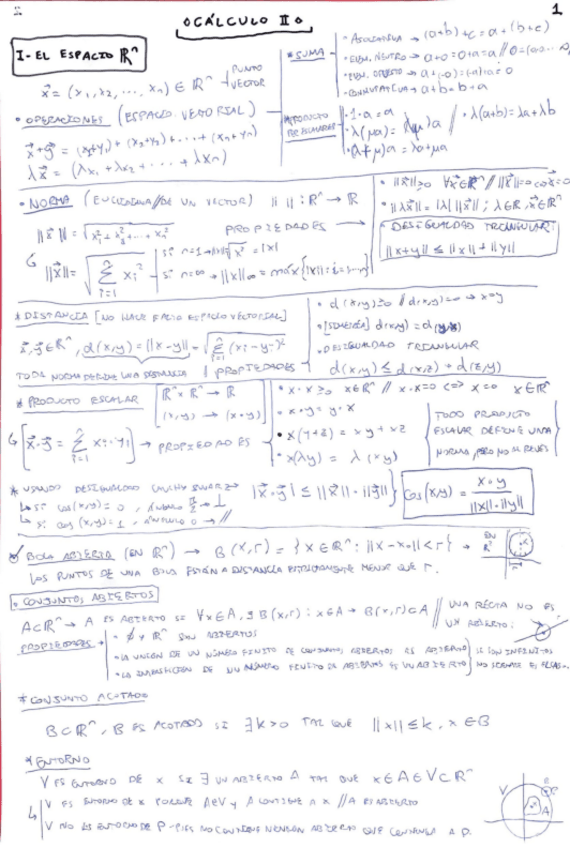 1
CÁLCULO II
I- EL ESPACIO ℝⁿ
x⃗ = (x₁, x₂, ... xₙ) ∈ ℝⁿ PUNTO VECTOR
• OPERACIONES (ESPACIO VECTORIAL)
x⃗+y⃗ = (x₁+y₁) + (x₂+y₂) + ... + (xₙ+yₙ)
λx⃗ = (λx₁ + λx₂ + ... + λxₙ)
* SUMA
• ASOCIATIVA → (a+b)+c = a+(b+c)
• ELEM. NEUTRO → a+0=0+a=a // 0=(0,0...0)
• ELEM. OPUESTO → a+(-a)=(-a)+a=0
• CONMUTATIVA → a+b=b+a
* PRODUCTO ESCALAR
• 1·a=a
• λ(μa) = (λμ)a // • λ(a+b)=λa+λb
• (λ+μ)a = λa+μa
• NORMA (EUCLIDIANA // DE UN VECTOR) || || : ℝⁿ → ℝ
||x⃗|| = √x₁²+x₂²+...+xₙ² PROPIEDADES →
||x⃗|| = √∑ⁿᵢ₌₁ xᵢ²
si n=1 → ||x||=√x² = |x|
si n=∞ → ||x||∞ = máx{|xᵢ|: i=1...n}
• ||x⃗||≥0 ∀x⃗∈ℝⁿ // ||x⃗||=0 ⇔ x⃗=0
• ||λx⃗|| = |λ| ||x⃗|| ; λ∈ℝ, x⃗∈ℝⁿ
• DESIGUALDAD TRIANGULAR:
||x+y|| ≤ ||x|| + ||y||
* DISTANCIA [NO HACE FALTA ESPACIO VECTORIAL]
x⃗,y⃗∈ℝⁿ, d(x,y)=||x-y||=√∑ⁿᵢ₌₁ (xᵢ-yᵢ)²
TODA NORMA DEFINE UNA DISTANCIA PROPIEDADES
• d(x,y)≥0 // d(x,y)=0 → x=y
• [SIMETRÍA] d(x,y)=d(y,x)
• DESIGUALDAD TRIANGULAR
d(x,y) ≤ d(x,z) + d(z,y)
* PRODUCTO ESCALAR
ℝⁿ x ℝⁿ → ℝ
(x,y) → (x·y)
x⃗·y⃗ = ∑ⁿᵢ₌₁ xᵢ·yᵢ → PROPIEDADES
• x·x≥0 x∈ℝⁿ // x·x=0 <=> x=0 x∈ℝⁿ
• x·y = y·x
• x(y+z) = xy + xz
• x(λy) = λ(xy)
TODO PRODUCTO ESCALAR DEFINE UNA NORMA, PERO NO AL REVÉS
* USANDO DESIGUALDAD CAUCHY SWARZ → |x⃗·y⃗| ≤ ||x⃗||·||y⃗||
↳ si cos(x,y)=0, ÁNGULO π/2 → ⊥
↳ si cos(x,y)=1, ÁNGULO 0 → //
Cos(x,y) = x·y / ||x||·||y||
BOLA ABIERTA (EN ℝⁿ) → B(x,r) = {x∈ℝⁿ: ||x-x₀||<r} → EN ℝ²
LOS PUNTOS DE UNA BOLA ESTÁN A DISTANCIA ESTRICTAMENTE MENOR QUE r.
• CONJUNTOS ABIERTOS
A⊂ℝⁿ → A ES ABIERTO SI ∀x∈A, ∃B(x,r): x∈A → B(x,r)⊂A // UNA RECTA NO ES UN ABIERTO:
PROPIEDADES
• ∅ y ℝⁿ SON ABIERTOS
• LA UNIÓN DE UN NÚMERO FINITO DE CONJUNTOS ABIERTOS ES ABIERTO
• LA INTERSECCIÓN DE UN NÚMERO FINITO DE ABIERTOS ES UN ABIERTO
SI SON INFINITOS NO SIEMPRE ES
* CONJUNTO ACOTADO
B⊂ℝⁿ, B ES ACOTADO SI ∃k>0 TAL QUE ||x||≤k, x∈B
* ENTORNO
V ES ENTORNO DE x SI ∃ UN ABIERTO A TAL QUE x∈A∈V⊂ℝⁿ
V ES ENTORNO DE x PORQUE A∈V y A CONTIENE A x // A ES ABIERTO
V NO ES ENTORNO DE P NO CONTIENE NINGÚN ABIERTO QUE CONTENGA A P.
V
A